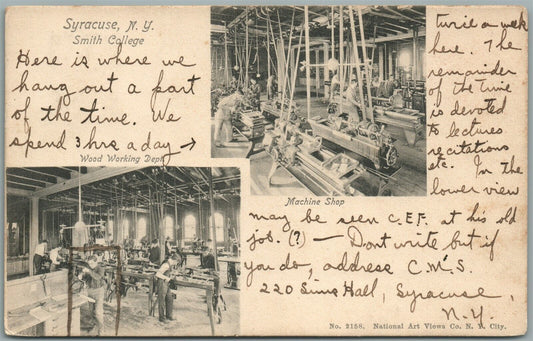 Syracuse, N. Y.
Smith College
Here is where we
hang out a part
of the time. We
spend 3 hrs a day →
Wood Working Dept.
Machine Shop
twice a week
here. The
remainder
of the time
is devoted
to lectures
recitations
etc. In the
lower view
may be seen C.E.F. at his old
job. (?) — Dont write but if
you do, address C.M.S.
220 Sims Hall, Syracuse,
N.Y.
No. 2158. National Art Views Co. N. Y. City.